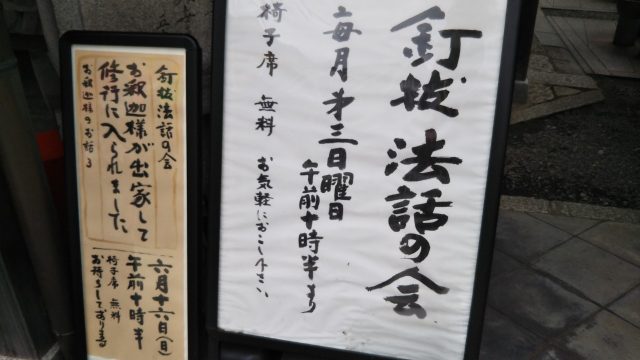 釘抜法話の会
毎月第三日曜日
午前十時半より
椅子席 無料 お気軽におこし下さい
釘抜法話の会
お釈迦様が出家して
修行に入られました
お釈迦様のお話る
六月十六日(日)
午前十時半
椅子席 無料
お待ちしております